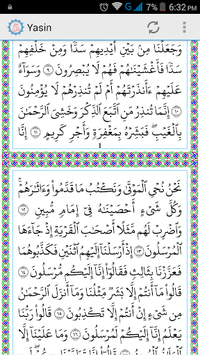 7% 6:32 PM
Yasin
وَجَعَلْنَا مِنۢ بَيْنِ أَيْدِيهِمْ سَدًّا وَمِنْ خَلْفِهِمْ
سَدًّا فَأَغْشَيْنَٰهُمْ فَهُمْ لَا يُبْصِرُونَ ٩ وَسَوَآءٌ
عَلَيْهِمْ ءَأَنذَرْتَهُمْ أَمْ لَمْ تُنذِرْهُمْ لَا يُؤْمِنُونَ
١٠ إِنَّمَا تُنذِرُ مَنِ ٱتَّبَعَ ٱلذِّكْرَ وَخَشِىَ ٱلرَّحْمَٰنَ
بِٱلْغَيْبِ فَبَشِّرْهُ بِمَغْفِرَةٍ وَأَجْرٍ كَرِيمٍ ١١ إِنَّا
١
نَحْنُ نُحْىِ ٱلْمَوْتَىٰ وَنَكْتُبُ مَا قَدَّمُوا۟ وَءَاثَٰرَهُمْ
وَكُلَّ شَىْءٍ أَحْصَيْنَٰهُ فِىٓ إِمَامٍ مُّبِينٍ ١٢
وَٱضْرِبْ لَهُم مَّثَلًا أَصْحَٰبَ ٱلْقَرْيَةِ إِذْ جَآءَهَا
ٱلْمُرْسَلُونَ ١٣ إِذْ أَرْسَلْنَآ إِلَيْهِمُ ٱثْنَيْنِ فَكَذَّبُوهُمَا
فَعَزَّزْنَا بِثَالِثٍ فَقَالُوٓا۟ إِنَّآ إِلَيْكُم مُّرْسَلُونَ ١٤
قَالُوا۟ مَآ أَنتُمْ إِلَّا بَشَرٌ مِّثْلُنَا وَمَآ أَنزَلَ ٱلرَّحْمَٰنُ
مِن شَىْءٍ إِنْ أَنتُمْ إِلَّا تَكْذِبُونَ ١٥ قَالُوا۟ رَبُّنَا
يَعْلَمُ إِنَّآ إِلَيْكُمْ لَمُرْسَلُونَ ١٦ وَمَا عَلَيْنَآ إِلَّا